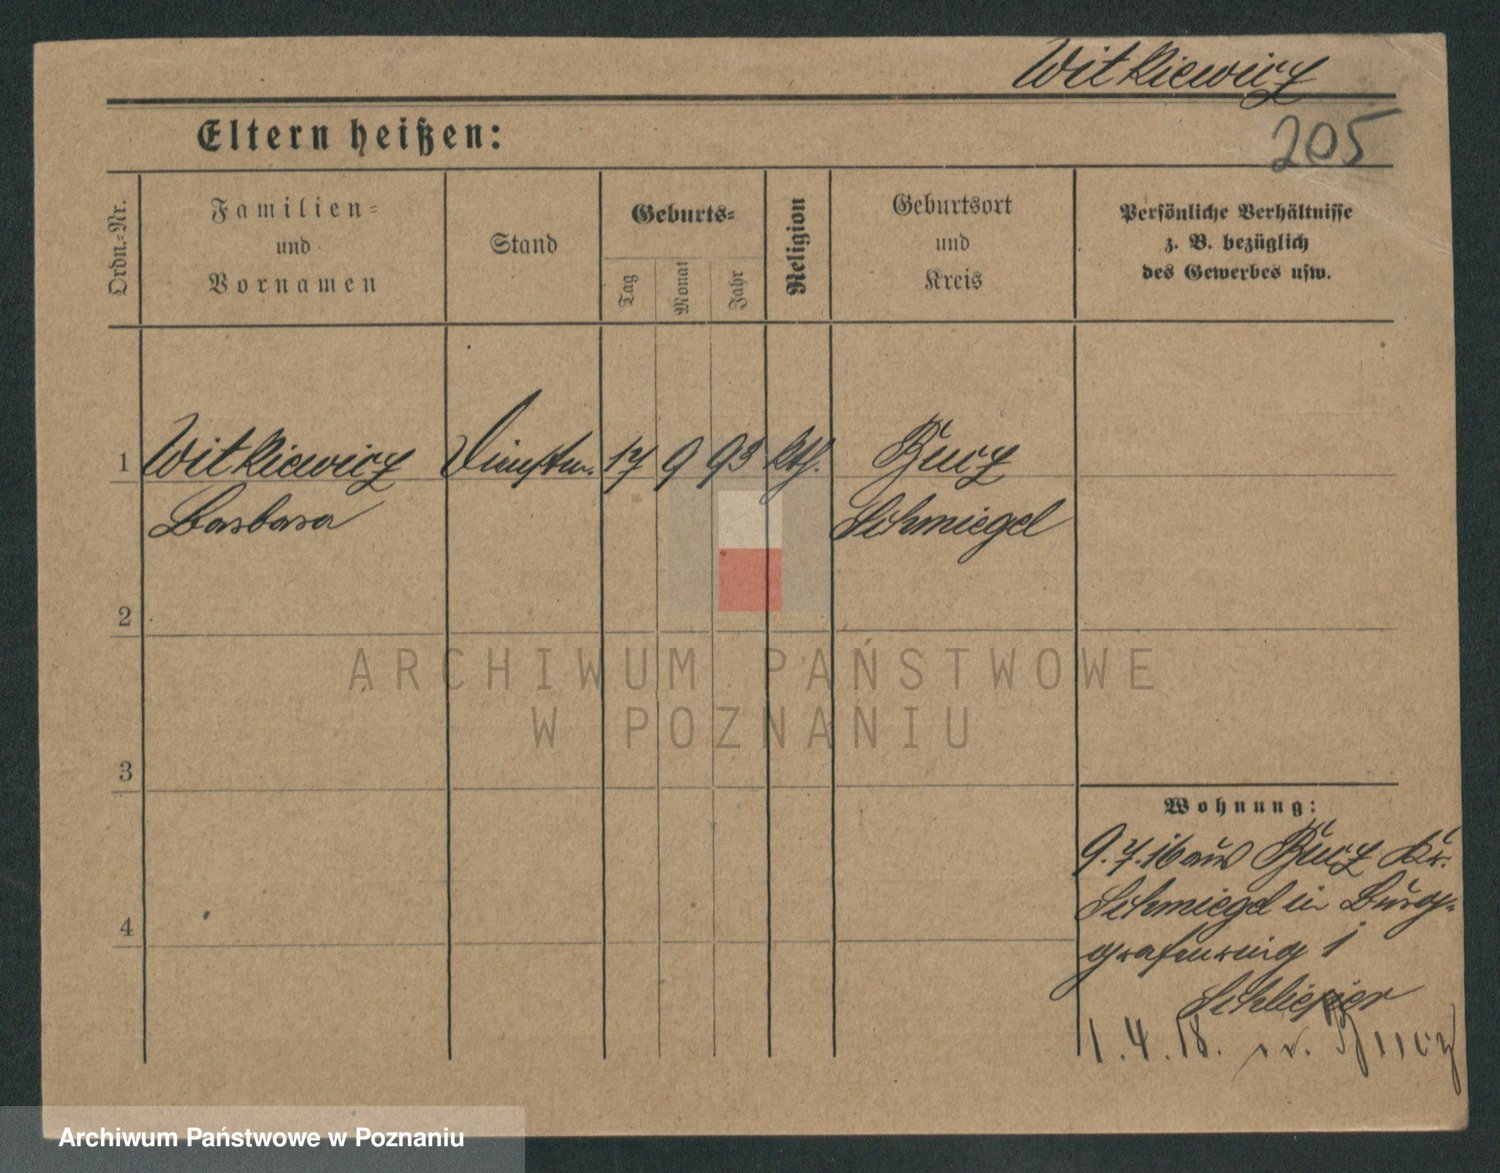 Witkiewicz
205
Eltern heißen:
Ordn.-Nr.
Familien-
und
Vornamen
Stand
Geburts-
Tag
Monat
Jahr
Religion
Geburtsort
und
Kreis
Persönliche Verhältnisse
z. B. bezüglich
des Gewerbes usw.
1 Witkiewicz 17 9 93 kth. Bucz
Barbara Schmiegel
2
3
4
Wohnung:
9.7.16 aus Bucz Kr.
Schmiegel in Burg-
grafenring 1
1.4.18. n. Bucz
ARCHIWUM PAŃSTWOWE
W POZNANIU
Archiwum Państwowe w Poznaniu